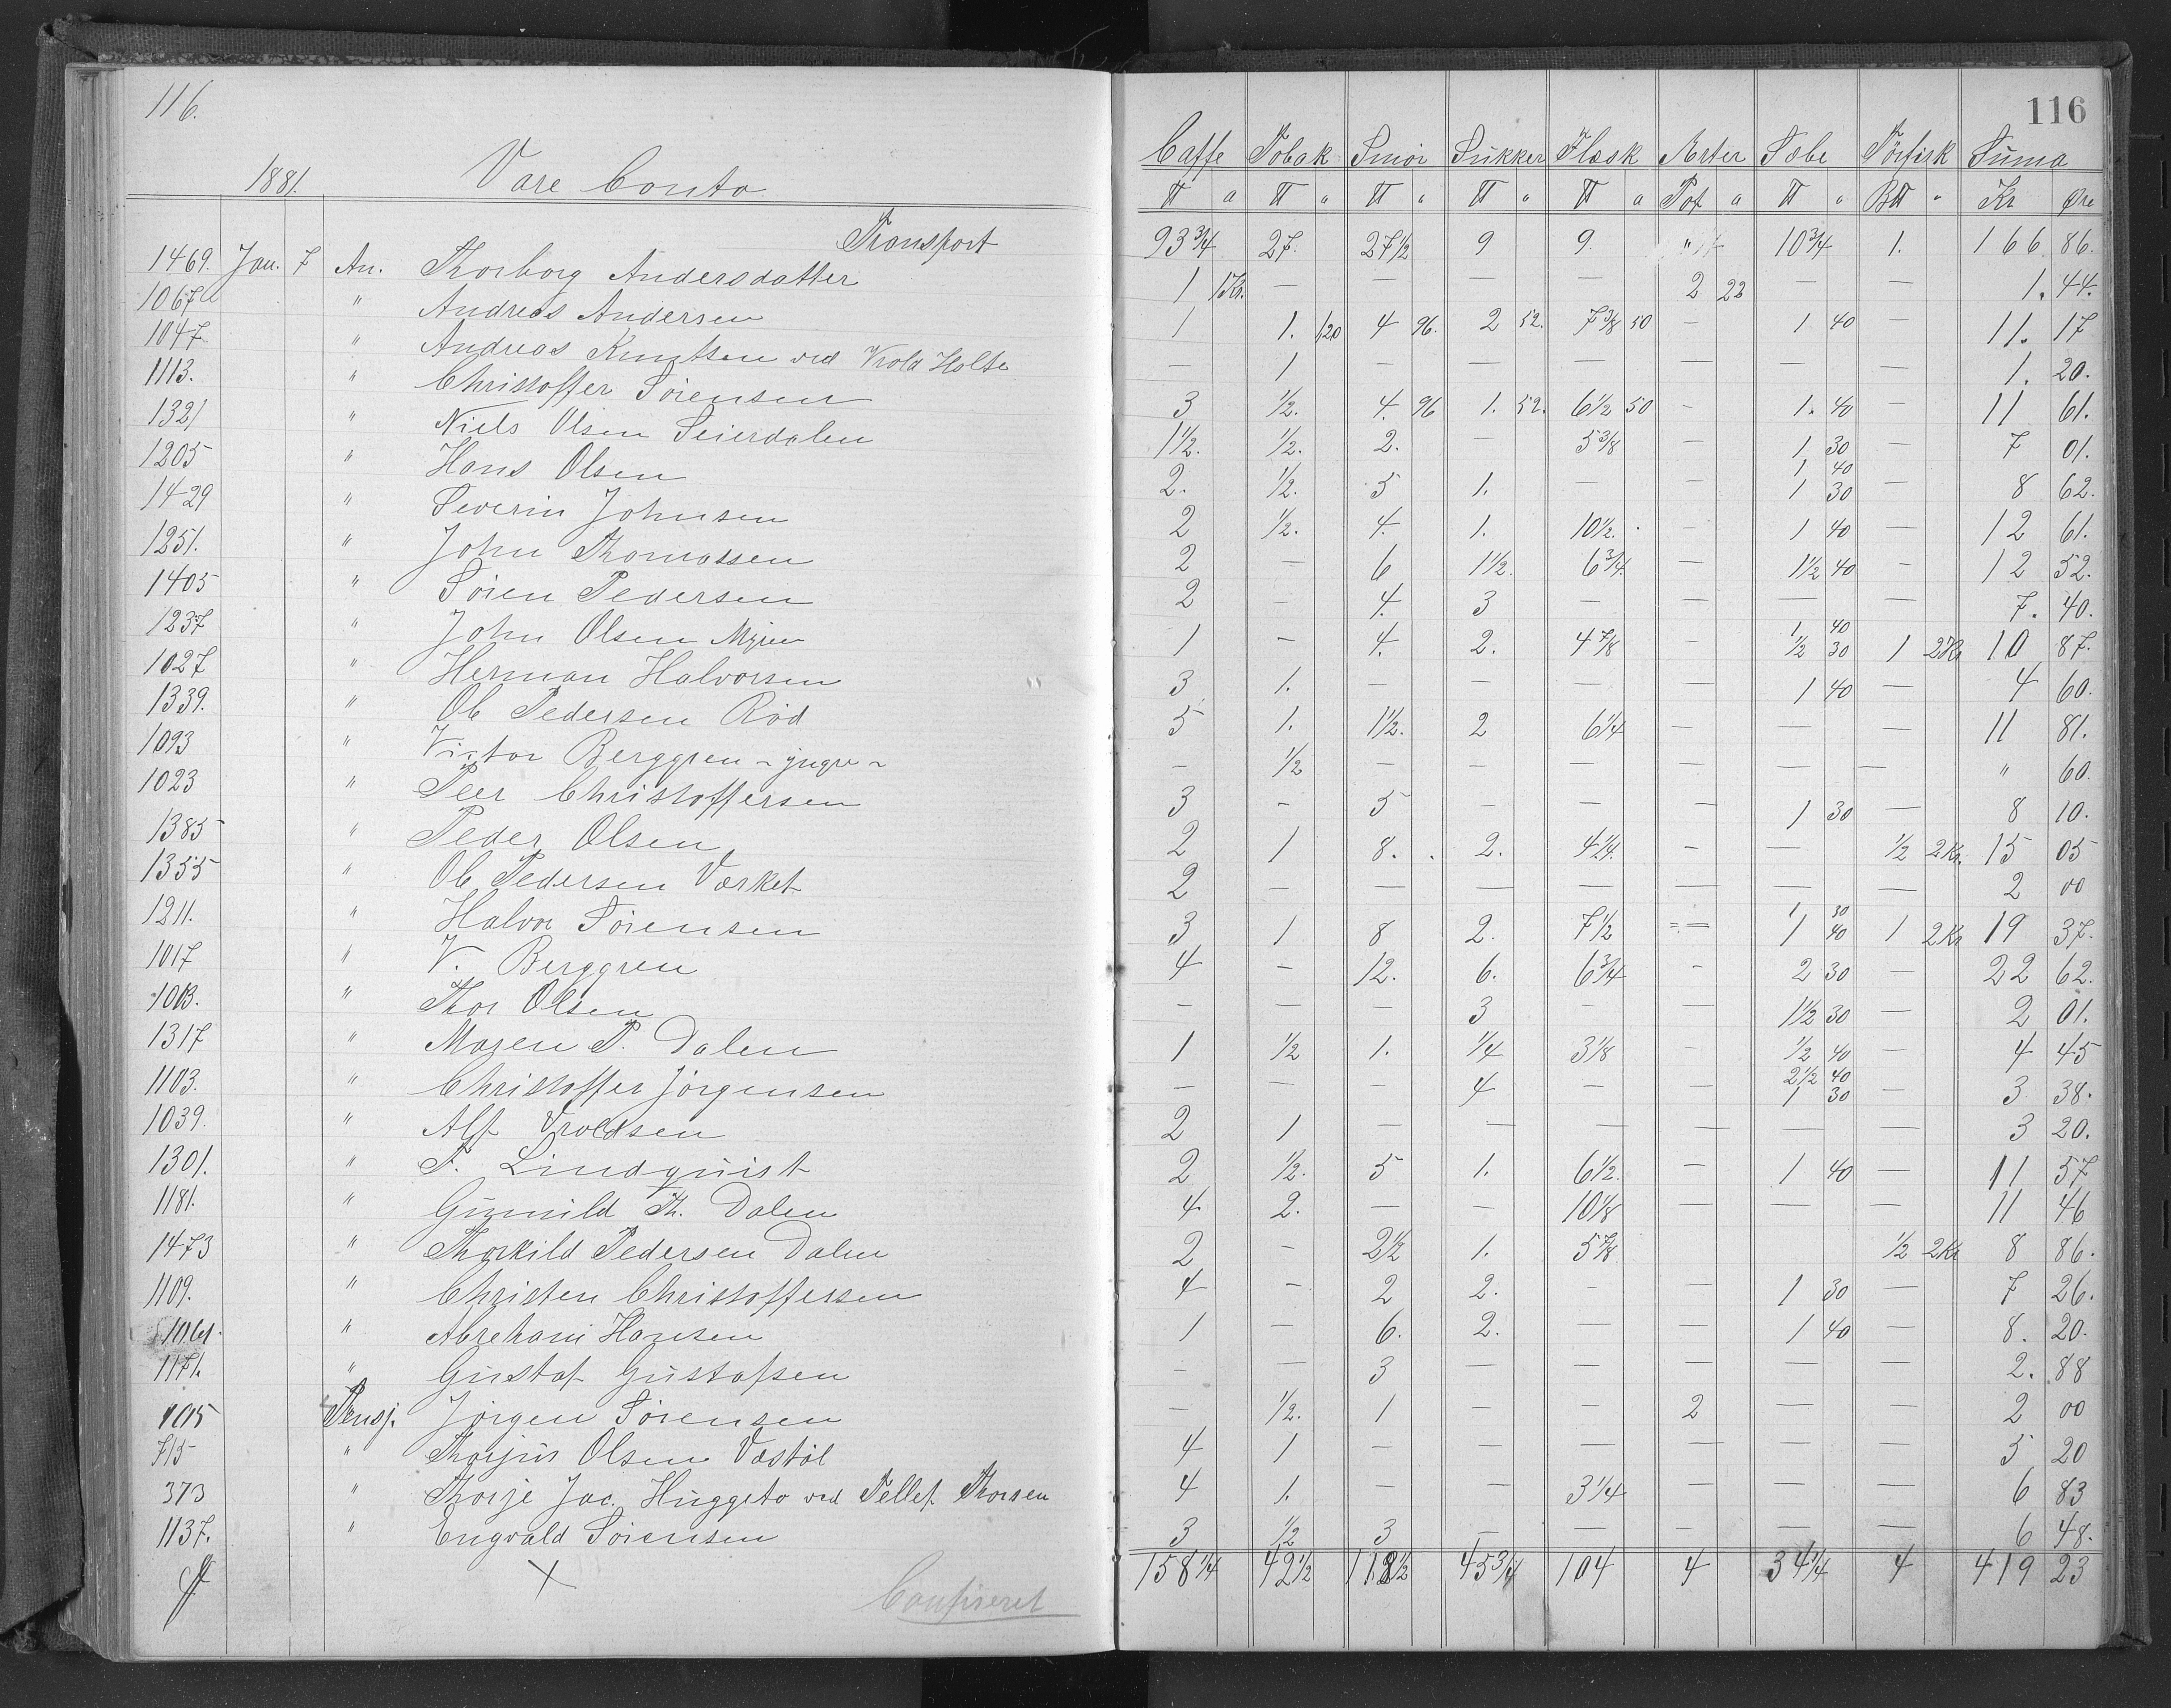 116.
116
1881. Vare Conto
Caffe Tobak Smör Sukker Flæsk Ærter Sæbe Törfisk Suma
℔ a ℔ " ℔ " ℔ " ℔ a Pot a ℔ " B℔ " Kr Øre
Transport 93 3/4 27. 27 1/2 9 9. 10 3/4 1. 166 86.
1469. Jan. 7 An. Thorborg Andersdatter 1 1Kr. — — — — 2 22 — — 1. 44.
1067 " Andreas Andersen 1 1. 120 4 96. 2 52. 7 3/8 50 — 1 40 — 11. 17
1047. " Andreas Knutsen ved Vrold Holte — 1 — — — — — — 1. 20.
1113. " Christoffer Sörensen 3 1/2. 4. 96 1. 52. 6 1/2 50 — 1. 40 — 11 61.
1321 " Niels Olsen Seierdalen 1 1/2. 1/2. 2. — 5 3/8 — 1 30 — 7 01.
1205 " Hans Olsen 2. 1/2. 5 1. — — 1 40 1 30 — 8 62.
1429 " Severin Johnsen 2 1/2. 4. 1. 10 1/2. — 1 40 — 12 61.
1251. " John Thomassen 2 — 6 1 1/2. 6 3/4. — 1 1/2 40 — 12 52.
1405 " Sören Pedersen 2 — 4. 3 — — — — 7. 40.
1237 " John Olsen Myren 1 — 4. 2. 4 7/8 — 1 40 1/2 30 1 2Kr 10 87.
1027 " Herman Halvorsen 3 1. — — — — 1 40 — 4 60.
1339. " Ole Pedersen Röd 5 1. 1 1/2. 2 6 1/4 — — — 11 81.
1093 " Victor Berggren - yngre - — 1/2 — — — — — — " 60.
1023 " Peer Christoffersen 3 — 5 — — — 1 30 — 8 10.
1385 " Peder Olsen 2 1 8. 2. 4 1/4. — — 1/2 2Kr. 15 05
1355 " Ole Pedersen Værket 2 — — — — — — — 2 00
1211. " Halvor Sörensen 3 1 8 2. 7 1/2 — 1 30 1 40 1 2Kr 19 37.
1017 " V. Berggren 4 — 12. 6. 6 3/4 — 2 30 — 22 62.
1013. " Thor Olsen — — — 3 — — 1 1/2 30 — 2 01.
1317 " Maren P. Dalen 1 1/2 1. 1/4 3 1/8 — 1/2 40 — 4 45
1103. " Christoffer Jörgensen — — — 4 — — 2 1/2 40 1 30 — 3 38.
1039. " Alf Vroldsen 2 1 — — — — — — 3 20.
1301. " F. Lindquist 2 1/2. 5 1. 6 1/2. — 1 40 — 11 57
1181. " Gunnild Th. Dalen 4. 2. — — 10 1/8 — — — 11 46
1473 " Thorkild Pedersen Dalen 2 — 2 1/2 1. 5 7/8. 1/2 2Kr 8 86.
1109. " Christen Christoffersen 4 — 2 2. — — 1 30 — 7 26.
1061. " Abreham Hansen 1 — 6. 2. — — 1 40 — 8. 20.
1171. " Gustaf Gustafsen — — 3 — — — — — 2. 88
Pensj. Jörgen Sörensen — 1/2. 1 — — 2 — — 2 00
715 " Thorjus Olsen Vastöl 4 1 — — — — — — 5 20
373 " Thorje Jac. Huggeto ved Tellef Thorsen 4 1. — — 3 1/4 — — — 6 83
1137. " Engvald Sörensen 3 1/2 3 — — — — — 6 48.
158 1/4 42 1/2 118 1/2 45 3/4 104 4 34 1/4 4 419 23
Confireret